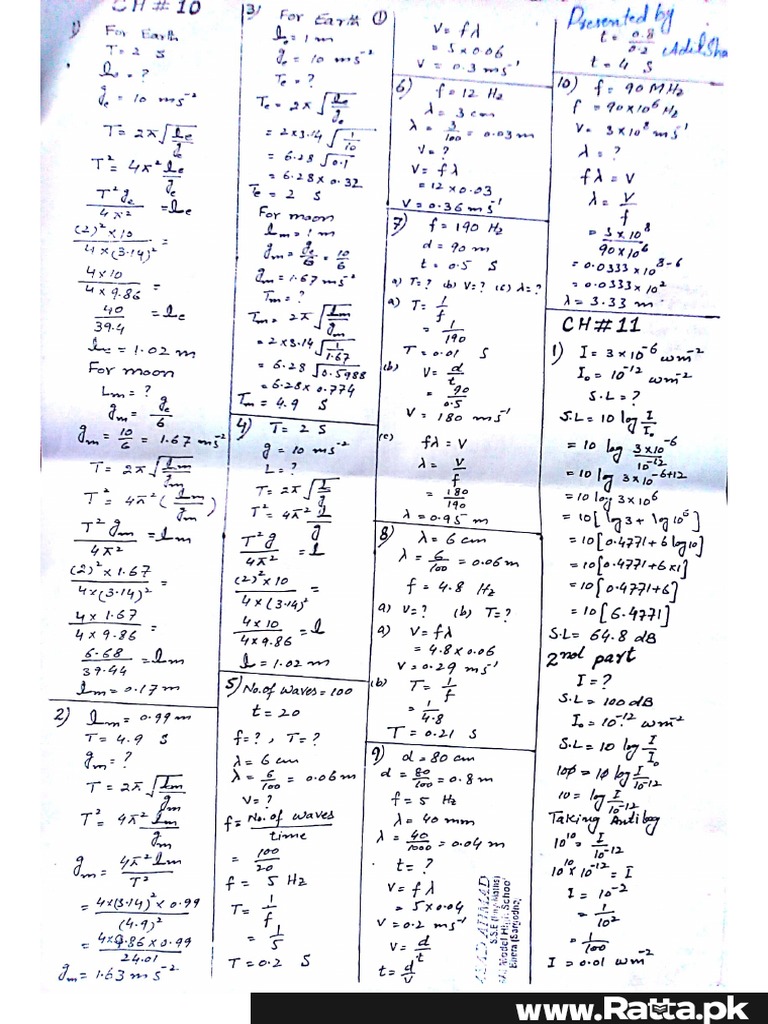 CH # 10
1) For Earth
T = 2 S
le = ?
ge = 10 ms⁻²
T = 2π √(le/ge)
T² = 4π² le/ge
T² ge / 4π² = le
(2)² × 10 / 4 × (3.14)² =
4 × 10 / 4 × 9.86 =
40 / 39.4 = le
le = 1.02 m
For moon
Lm = ?
gm = ge/6
gm = 10/6 = 1.67 ms⁻²
T = 2π √(lm/gm)
T² = 4π² (lm/gm)
T² gm / 4π² = lm
(2)² × 1.67 / 4 × (3.14)² =
4 × 1.67 / 4 × 9.86 =
6.68 / 39.44 = lm
lm = 0.17 m
2) lm = 0.99 m
T = 4.9 S
gm = ?
T = 2π √(lm/gm)
T² = 4π² lm/gm
gm = 4π² lm / T²
= 4 × (3.14)² × 0.99 / (4.9)²
= 4 × 9.86 × 0.99 / 24.01
gm = 1.63 ms⁻²
3) For Earth ①
le = 1 m
ge = 10 ms⁻²
Te = ?
Te = 2π √(le/ge)
= 2 × 3.14 √(1/10)
= 6.28 √0.1
= 6.28 × 0.32
Te = 2 S
For moon
lm = 1 m
gm = ge/6 = 10/6
gm = 1.67 ms⁻²
Tm = ?
Tm = 2π √(lm/gm)
= 2 × 3.14 √(1/1.67)
= 6.28 √0.5988
= 6.28 × 0.774
Tm = 4.9 S
4) T = 2 S
g = 10 ms⁻²
L = ?
T = 2π √(l/g)
T² = 4π² l/g
T² g / 4π² = l
(2)² × 10 / 4 × (3.14)² =
4 × 10 / 4 × 9.86 = l
l = 1.02 m
5) No. of waves = 100
t = 20
f = ? , T = ?
λ = 6 cm
λ = 6/100 = 0.06 m
V = ?
f = No. of waves / time
= 100/20
f = 5 Hz
T = 1/f
= 1/5
T = 0.2 S
V = fλ
= 5 × 0.06
V = 0.3 ms⁻¹
6) f = 12 Hz
λ = 3 cm
λ = 3/100 = 0.03 m
V = ?
V = fλ
= 12 × 0.03
V = 0.36 ms⁻¹
7) f = 190 Hz
d = 90 m
t = 0.5 S
a) T = ? (b) V = ? (c) λ = ?
a) T = 1/f
= 1/190
T = 0.01 S
(b) V = d/t
= 90/0.5
V = 180 ms⁻¹
(c) fλ = V
λ = V/f
= 180/190
λ = 0.95 m
8) λ = 6 cm
λ = 6/100 = 0.06 m
f = 4.8 Hz
a) V = ? (b) T = ?
a) V = fλ
= 4.8 × 0.06
V = 0.29 ms⁻¹
(b) T = 1/f
= 1/4.8
T = 0.21 S
9) d = 80 cm
d = 80/100 = 0.8 m
f = 5 Hz
λ = 40 mm
λ = 40/1000 = 0.04 m
t = ?
V = fλ
= 5 × 0.04
V = 0.2 ms⁻¹
V = d/t
t = d/V
Presented by
Adil Sha
t = 0.8/0.2
t = 4 S
10) f = 90 MHz
f = 90 × 10⁶ Hz
V = 3 × 10⁸ ms⁻¹
λ = ?
fλ = V
λ = V/f
= 3 × 10⁸ / 90 × 10⁶
= 0.0333 × 10⁸⁻⁶
= 0.0333 × 10²
λ = 3.33 m
CH # 11
1) I = 3 × 10⁻⁶ wm⁻²
I₀ = 10⁻¹² wm⁻²
S.L = ?
S.L = 10 log I/I₀
= 10 log 3×10⁻⁶ / 10⁻¹²
= 10 log 3 × 10⁻⁶⁺¹²
= 10 log 3 × 10⁶
= 10 [log 3 + log 10⁶]
= 10 [0.4771 + 6 log 10]
= 10 [0.4771 + 6 × 1]
= 10 [0.4771 + 6]
= 10 [6.4771]
S.L = 64.8 dB
2nd part
I = ?
S.L = 100 dB
I₀ = 10⁻¹² wm⁻²
S.L = 10 log I/I₀
100 = 10 log I/10⁻¹²
10 = log I/10⁻¹²
Taking Antilog
10¹⁰ = I/10⁻¹²
10¹⁰ × 10⁻¹² = I
I = 10⁻²
= 1/10²
= 1/100
I = 0.01 wm⁻²
AHMAD
High School
www.Ratta.pk